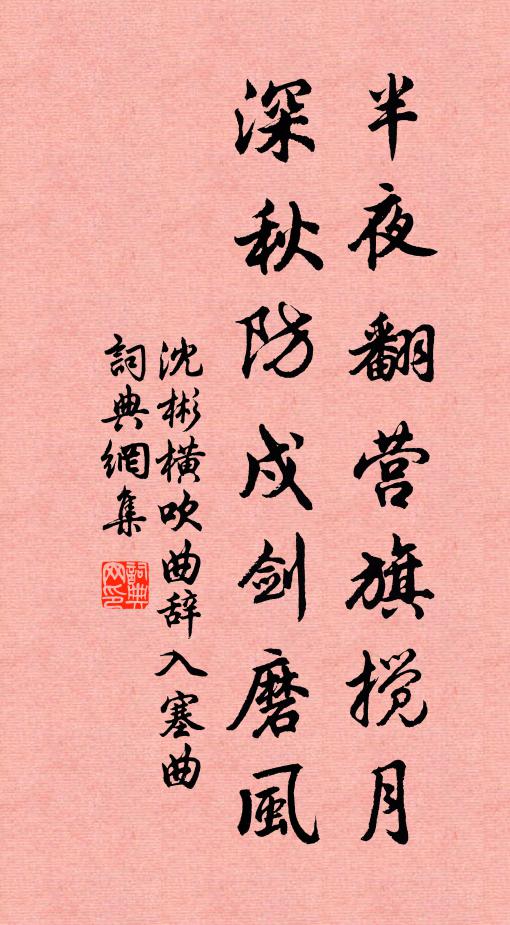 半夜翻营旗搅月
深秋防戍剑磨風
沈彬横吹曲辞入塞曲
詞典網集
詞典网印